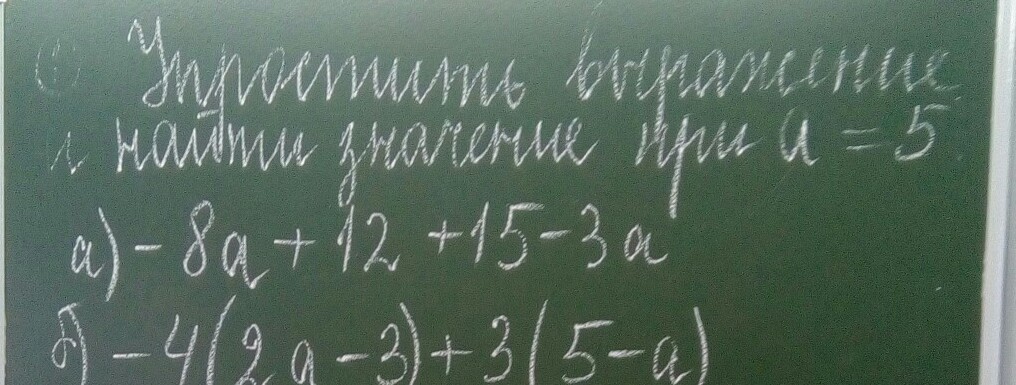 ① Упростить выражение
и найти значение при a = 5
а) - 8a + 12 + 15 - 3a
б) - 4(2a - 3) + 3(5 - a)